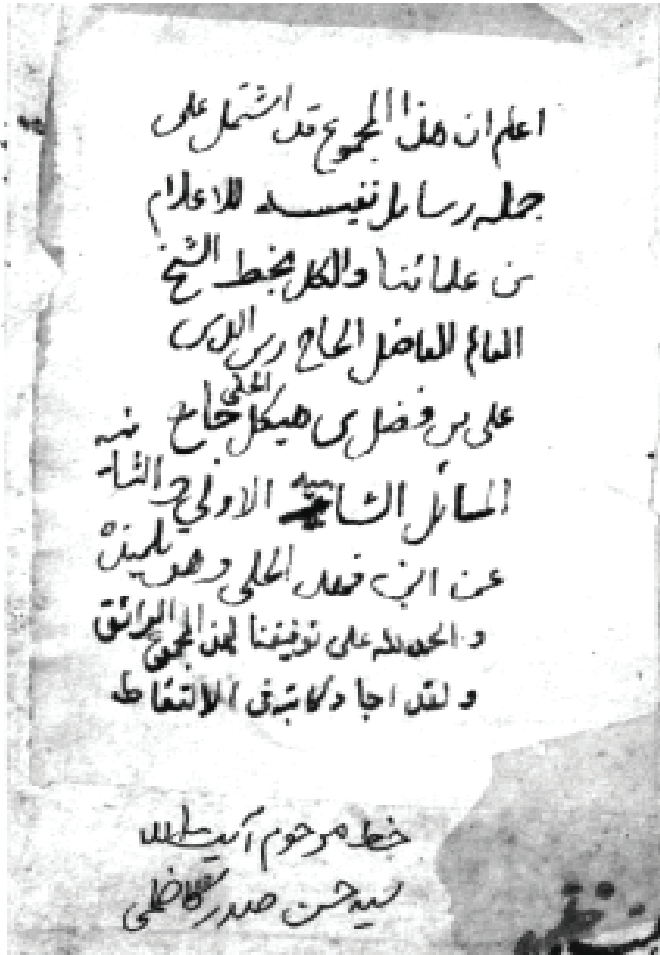 اعلم ان هذا المجموع قد اشتمل على
جمله رسايل نفيسه للاعلام
من علمائنا والكل بخط الشيخ
العالم الفاضل الحاج زين الدين
على بن فضل بن هيكل الحلى جامع
المسائل الشاميه الاولى والثانيه
عن ابن فهد الحلى وهو تلميذه
والحمد لله على توفيقنا لهذا المجموع الرائق
ولقد اجاد كاتبه فى الالتقاط
خط مرحوم آيت الله
سيد حسن صدر كاظمى